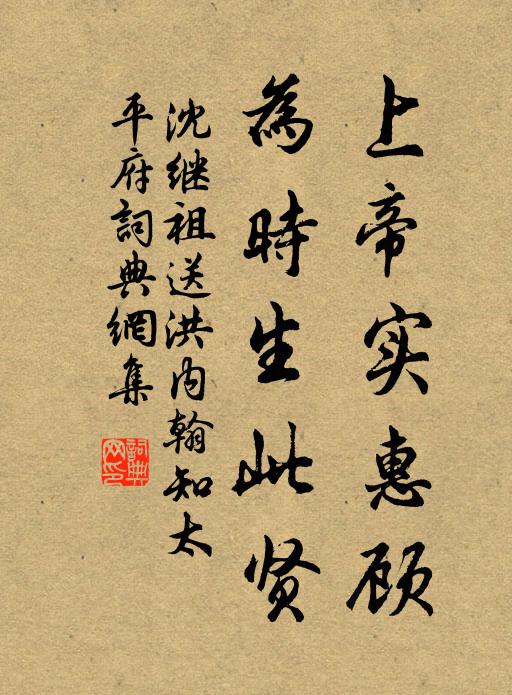 上帝实惠顾
為時生此贤
沈继祖送洪内翰知太
平府詞典網集
詞典
网印